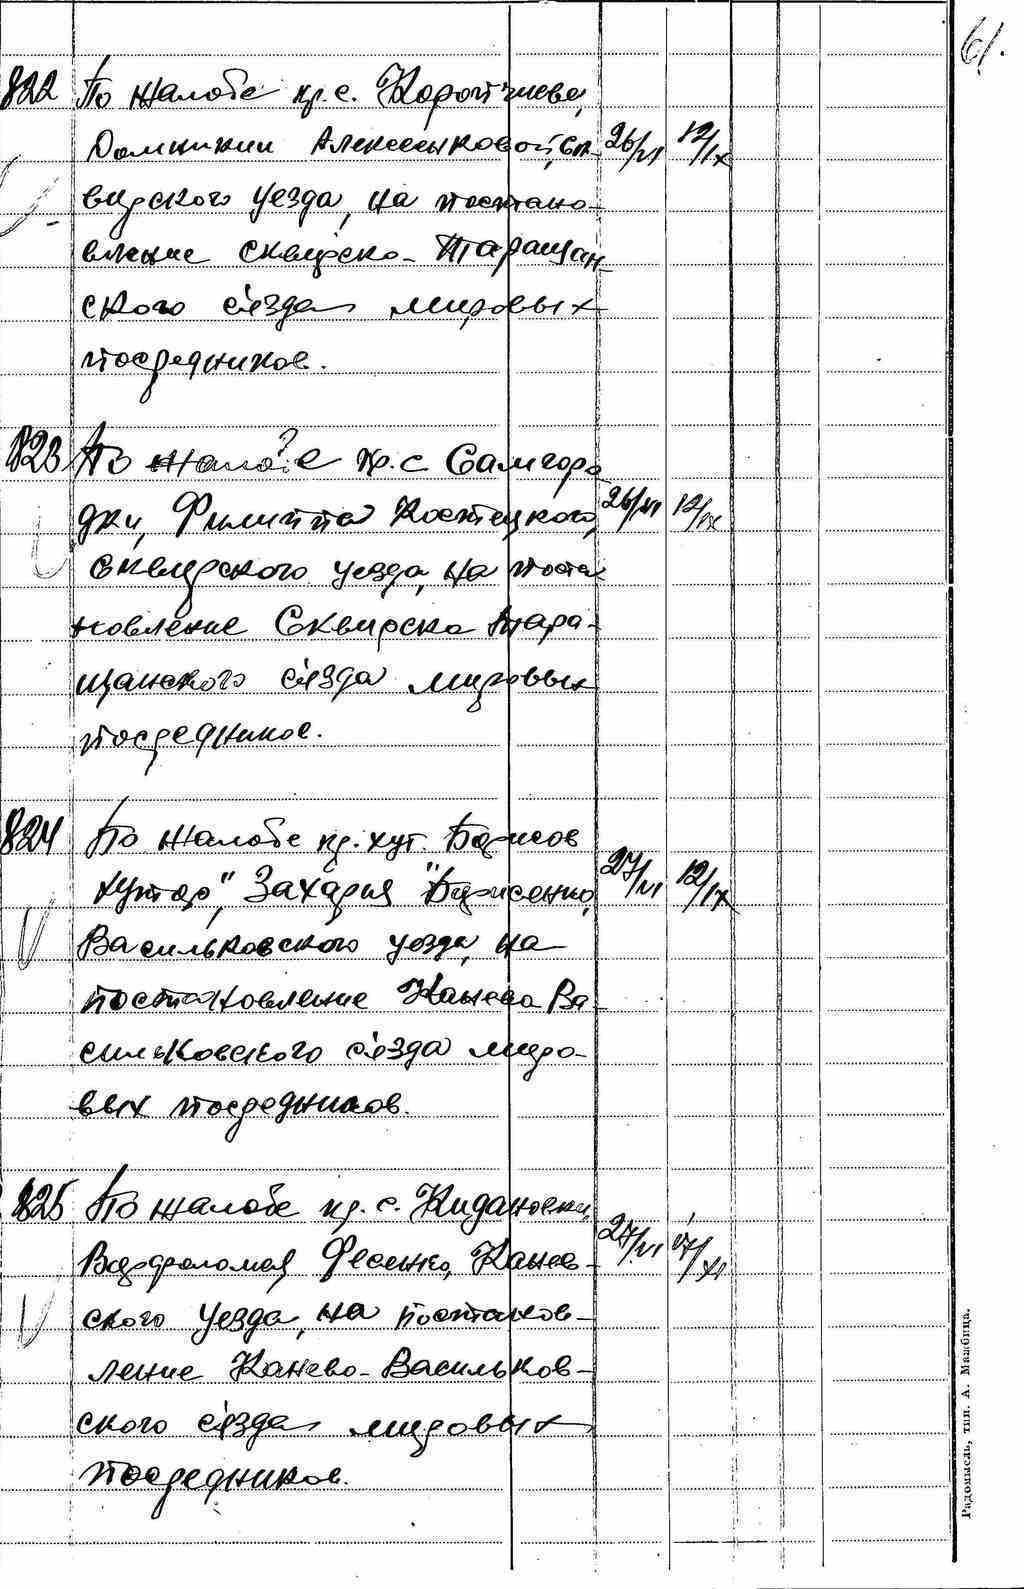 61.
822 По жалобе кр. с. Коротчиева,
Домникии Алексюковой, Ск- 26/VI 12/IX
вирского уезда, на постано-
вление Сквирско-Таращан-
ского съезда мировых
посредников.
823 По жалобе кр. с Самгоро
дки, Филиппа Костецкого, 26/VI 12/IX
Сквирского уезда, на поста
новление Сквирско Тара-
щанского съезда мировых
посредников.
824 По жалобе кр. хут. Борисов
хутор", Захария Борисенко, 27/VI 12/IX
Васильковского уезда, на
постановление Канево Ва-
сильковского съезда миро-
вых посредников.
825 По жалобе кр. с. Кидановки,
Варфоломея Фесенко, Канев- 27/VI 17/XI
ского уезда, на постанов-
ление Канево-Васильков-
ского съезда мировых
посредников.
Радомысль, тип. А. Мажбица.